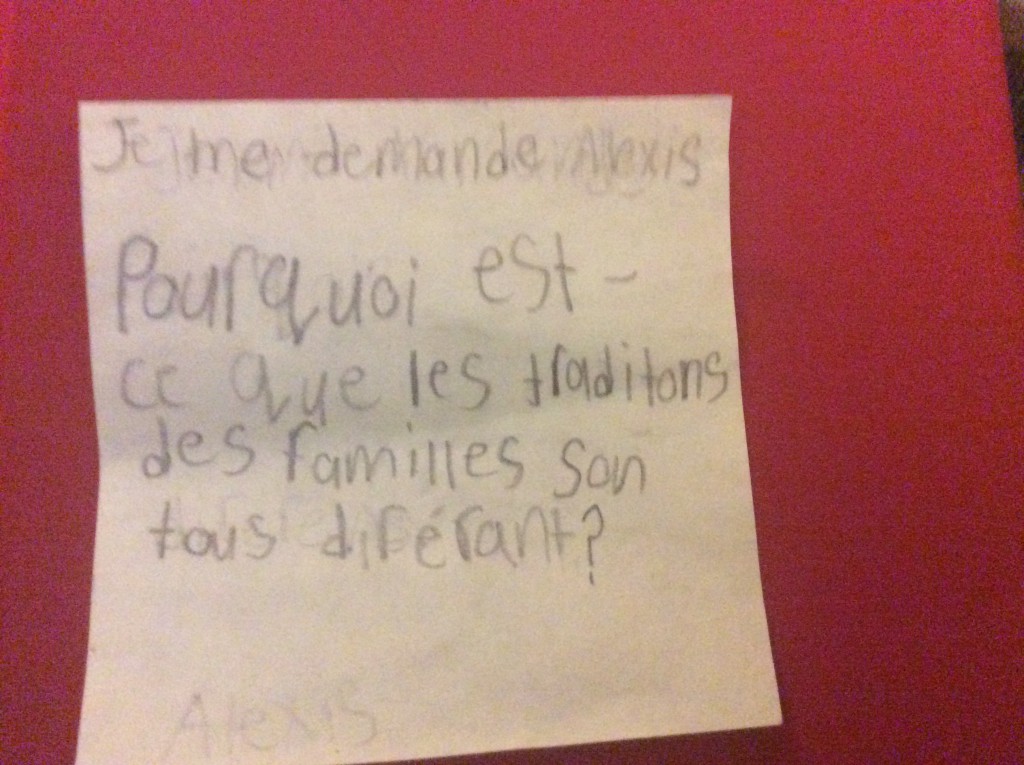 Je me demande Alexis
Pourquoi est-
ce que les traditons
des familles son
tous diférant?
Alexis